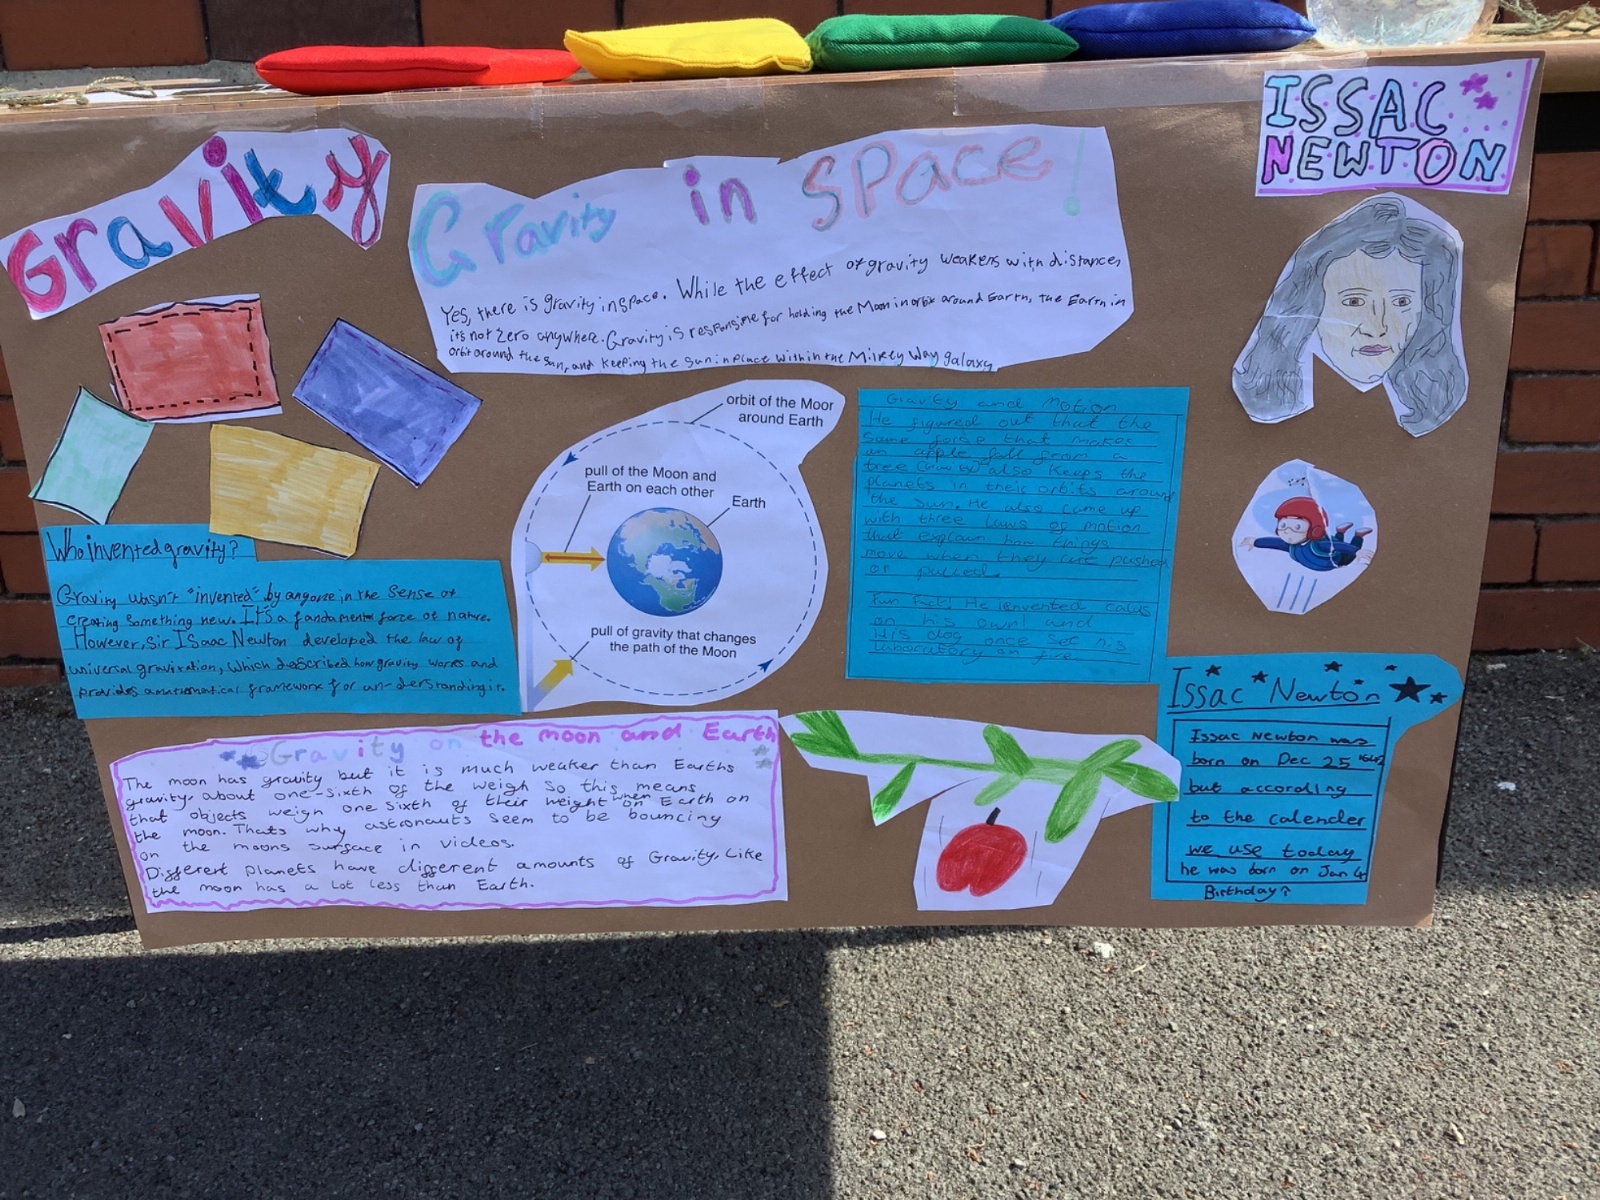 Gravity
Gravity in space!
Yes, there is gravity in space. While the effect of gravity weakens with distance,
it's not zero anywhere. Gravity is responsime for holding the Moon in orbit around Earth, the Earth in
orbit around the sun, and keeping the sun in place within the Milkey Way galaxy
ISSAC
NEWTON
Who invented gravity?
Gravity wasn't "invented" by anyone in the sense of
creating something new. It's a fundamental force of nature.
However, Sir Isaac Newton developed the law of
universal gravitation, which described how gravity works and
provides a mathematical framework for un-derstanding it.
orbit of the Moon
around Earth
pull of the Moon and
Earth on each other
Earth
pull of gravity that changes
the path of the Moon
Gravity and Motion
He figured out that the
same forse that makes
an apple fall from a
tree Gravity also keeps the
planets in their orbits around
the sun. He also came up
with three laws of motion
that explain how things
move when they are pushed
or pulled.
Fun fact! He invented calus
on his own! and
His dog once set his
laboratory on fire
Gravity on the moon and Earth
The moon has gravity but it is much weaker than Earths
gravity. about one-sixth of the weigh so this means
that objects weigh one sixth of their weight when on Earth on
the moon. Thats why astronauts seem to be bouncing
on the moons surface in videos.
Different planets have different amounts of Gravity. Like
the moon has a lot less than Earth.
Issac Newton
Issac Newton was
born on Dec 25 1642
but according
to the calender
we use today
he was born on Jan 4
Birthday?